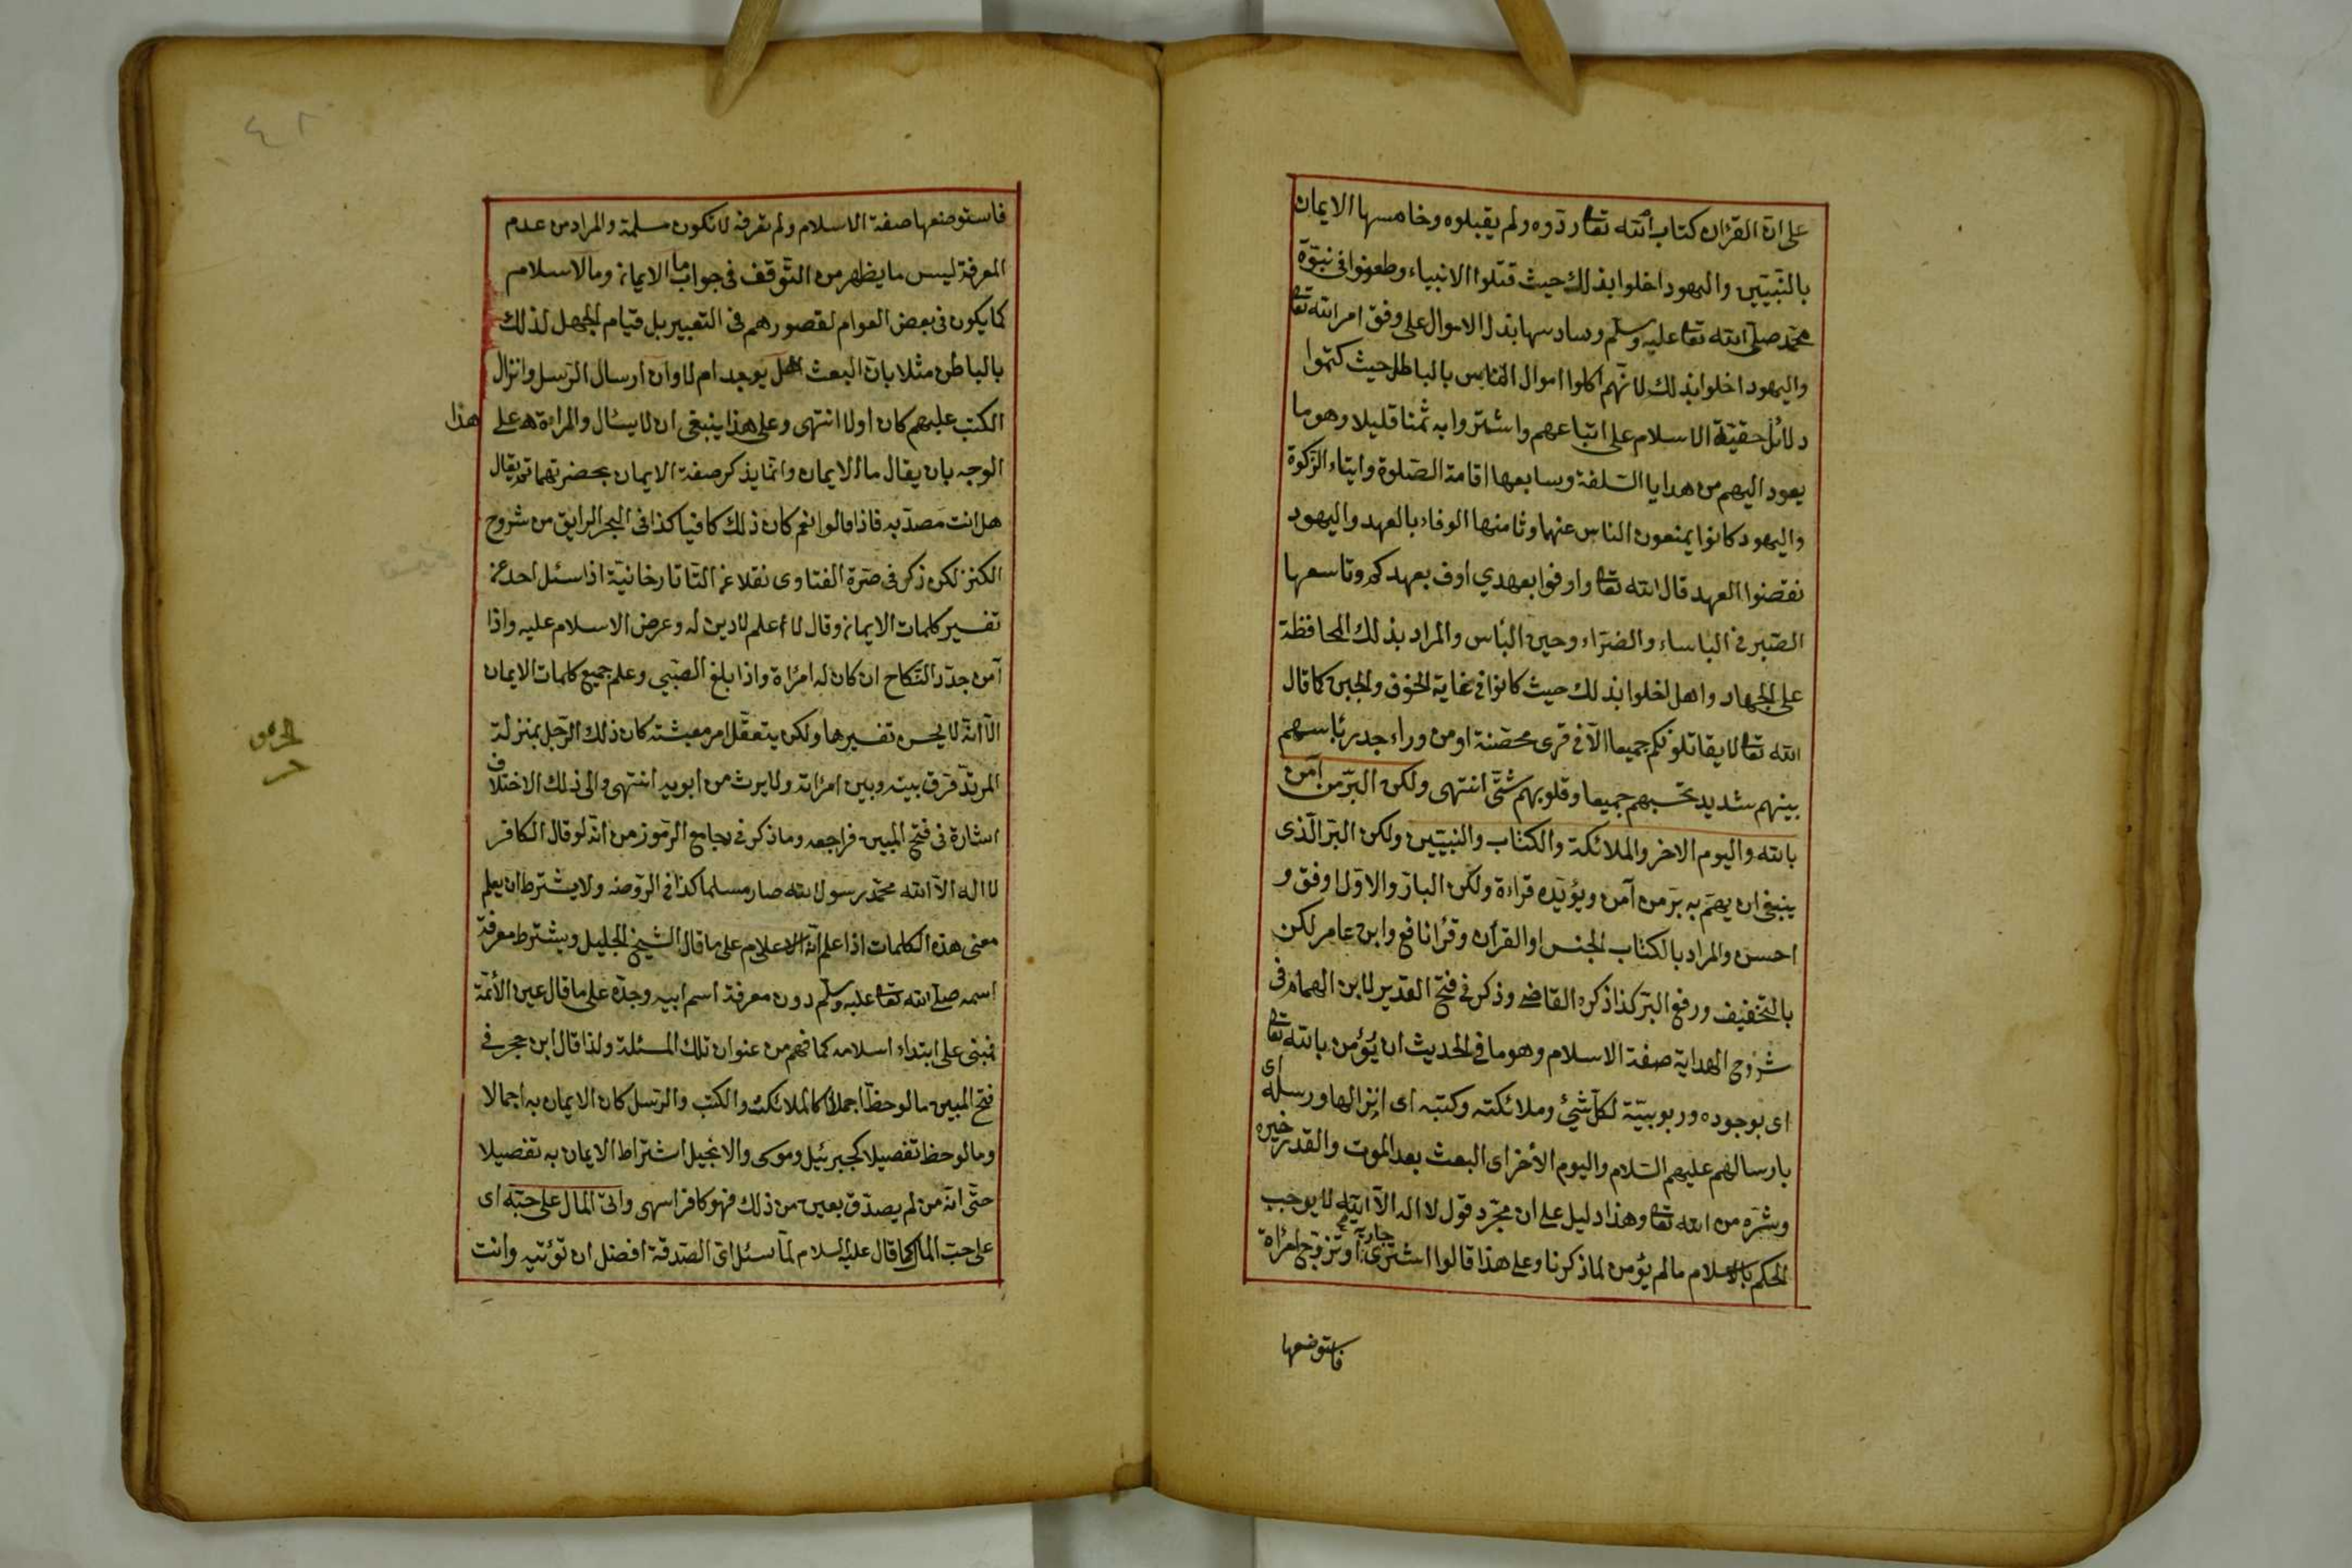 على ان القرآن كتاب الله تعا ردوه ولم يقبلوه وخامسها الايمان
بالنبيين واليهود اخلوا بذلك حيث قتلوا الانبياء وطعنوا فى نبوة
محمد صلى الله تعا عليه وسلم وسادسها بذل الاموال على وفق امر الله تعا
واليهود اخلوا بذلك لانهم اكلوا اموال الناس بالباطل حيث كتموا
دلائل حقية الاسلام على اتباعهم واشتروا به ثمنا قليلا وهو ما
يعود اليهم من هدايا السفلة وسابعها اقامة الصلوة وايتاء الزكوة
واليهود كانوا يمنعون الناس عنها وثامنها الوفاء بالعهد واليهود
نقضوا العهد قال الله تعا واوفوا بعهدي اوف بعهدكم وتاسعها
الصبر فى الباساء والضراء وحين البأس والمراد بذلك المحافظة
على الجهاد واهل اخلوا بذلك حيث كانوا فى غاية الخوف والجبن كما قال
الله تعا لا يقاتلونكم جميعا الا فى قرى محصنة او من وراء جدر بأسهم
بينهم شديد تحسبهم جميعا وقلوبهم شتى انتهى ولكن البر من آمن
بالله واليوم الاخر والملائكة والكتاب والنبيين ولكن البر الذى
ينبغى ان يهتم به بر من آمن ويؤيده قراءة ولكن البار والاول اوفق و
احسن والمراد بالكتاب الجنس او القرآن وقرأ نافع وابن عامر لكن
بالتخفيف ورفع البر كذا ذكره القاضى وذكر فى فتح القدير لابن الهمام فى
شروح الهداية صفة الاسلام وهو ما فى الحديث ان يؤمن بالله تعا
اى بوجوده وربوبيته لكل شئ وملائكته وكتبه اى انزالها ورسله اى
بارسالهم عليهم السلام واليوم الأخر اى البعث بعد الموت والقدر خيره
وشره من الله تعا وهذا دليل على ان مجرد قول لا اله الا الله لا يوجب
الحكم بالاسلام ما لم يؤمن لما ذكرنا وعلى هذا قالوا اشترى جارية او تزوج امرأة
فاستوضعها
فاستوضعها صفة الاسلام ولم تعرفه لا تكون مسلمة والمراد من عدم
المعرفة ليس ما يظهر من التوقف فى جواب ما الايمان وما الاسلام
كما يكون فى بعض العوام لقصورهم فى التعبير بل قيام الجهل لذلك
بالباطن مثلا بان البعث هل يوجد ام لا وان ارسال الرسل وانزال
الكتب عليهم كان اولا انتهى وعلى هذا ينبغى ان لا يسأل والمراءة على هذا
الوجه بان يقال ما الايمان وانما يذكر صفة الايمان بحضرتهما ثم يقال
هل انت مصدق به فاذا قالوا نعم كان ذلك كافيا كذا فى البحر الرايق من شروح
الكنز لكن ذكر فى صرة الفتاوى نقلا عن التاتارخانية اذا سئل احد عن
تفسير كلمات الايمان وقال لا أعلم لا دين له وعرض الاسلام عليه واذا
آمن جدد النكاح ان كان له امرأة واذا بلغ الصبى وعلم جميع كلمات الايمان
الا انه لا يحسن تفسيرها ولكن يتعقل امر معيشته كان ذلك الرجل بمنزلة
المرتد فرق بينه وبين امرأته ولا يرث من ابويه انتهى والى ذلك الاختلاف
اشارة فى فتح المبين فراجعه وما ذكر فى جامع الرموز من انه لو قال الكافر
لا اله الا الله محمد رسول الله صار مسلما كذا فى الروضه ولا يشترط ان يعلم
معنى هذه الكلمات اذا علم انه الاسلام على ما قال الشيخ الجليل ويشترط معرفة
اسمه صلى الله تعا عليه وسلم دون معرفة اسم ابيه وجده على ما قال عين الأئمة
فمبنى على ابتداء اسلامه كما فهم من عنوان تلك المسئلة ولذا قال ابن حجر فى
فتح المبين ما لوحظ اجمالا كالملائكة والكتب والرسل كان الايمان به اجمالا
وما لوحظ تفصيلا كجبرئيل وموسى والانجيل اشتراط الايمان به تفصيلا
حتى انه من لم يصدق بعين من ذلك فهو كافر انتهى واتى المال على حبه اى
على حب المال كما قال عليه السلام لما سئل اى الصدقة افضل ان تؤتيه وانت